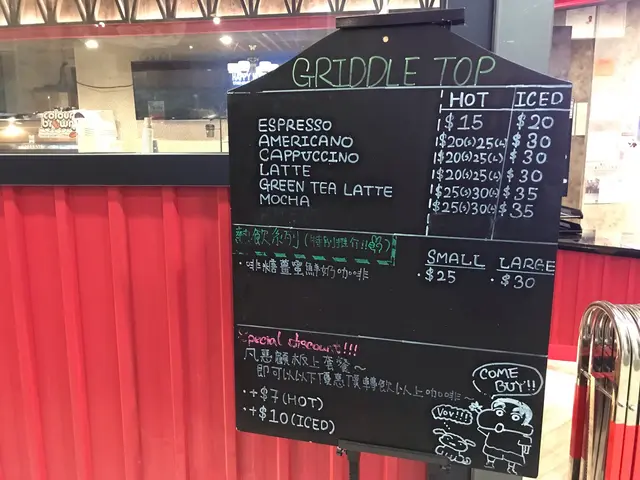 GRIDDLE TOP
HOT ICED
ESPRESSO $15 $20
AMERICANO $20(S)25(L) $30
CAPPUCCINO $20(S)25(L) $30
LATTE $20(S)25(L) $30
GREEN TEA LATTE $25(S)30(L) $35
MOCHA $25(S)30(L) $35
熱飲系列 (特別推介!!
SMALL LARGE
· 啡糖薑蜜鮮奶咖啡 · $25 · $30
Special discount!!!
凡惠顧板上套餐~
即可以以下優惠價轉飲以上咖啡~
· +$7 (HOT)
· +$10 (ICED)
COME BUY!!
Vov!!!
colour